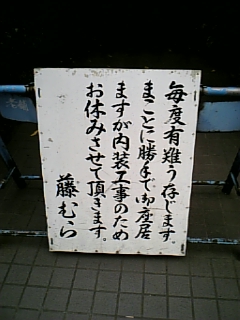 毎度有難う存じます。
まことに勝手で御座居
ますが内装工事のため
お休みさせて頂きます。
藤むら